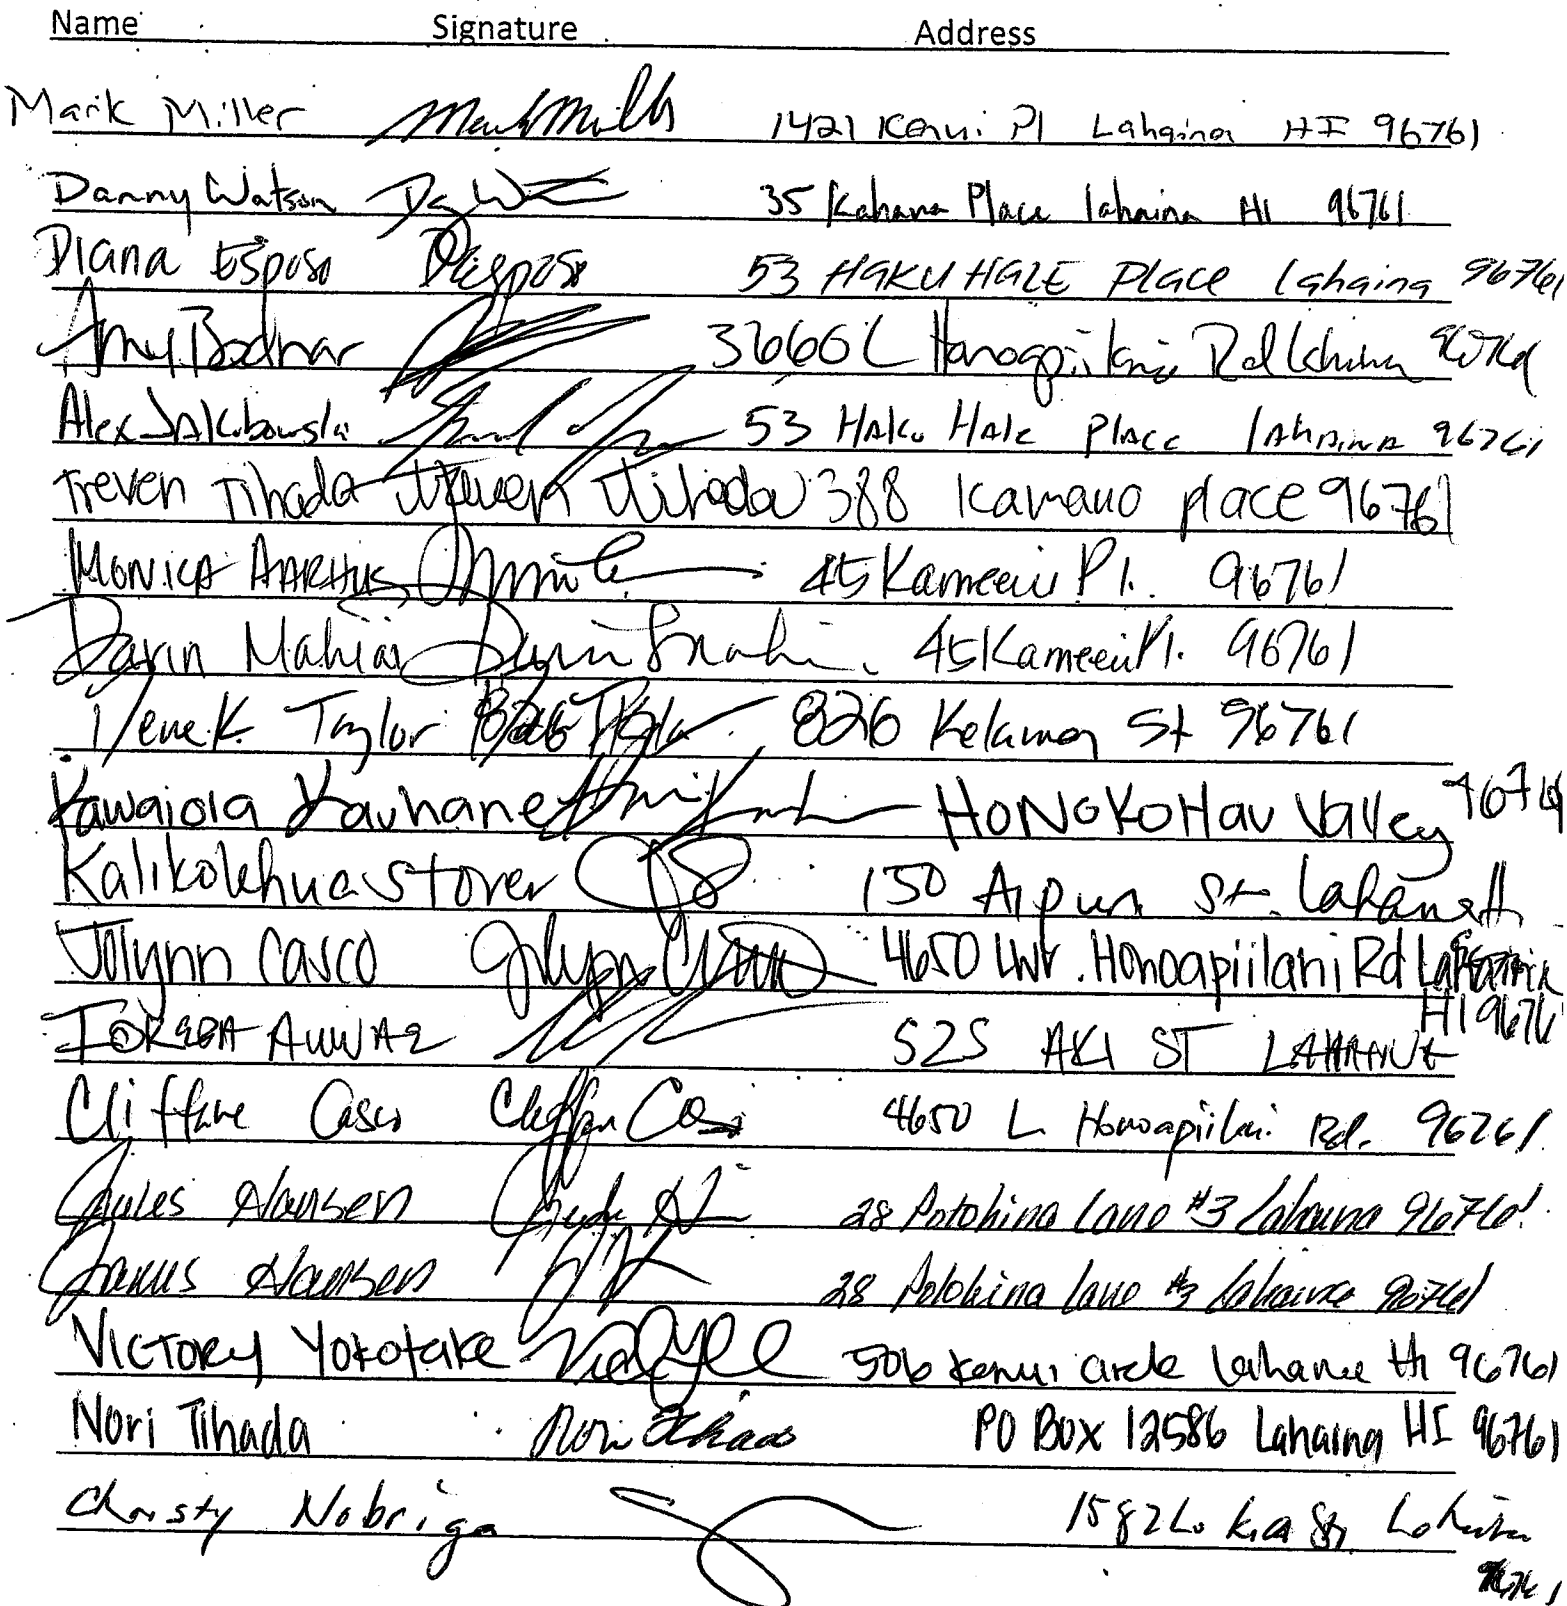 Name Signature Address
Mark Miller Mark Mills 1421 Kenui Pl Lahaina HI 96761
Danny Watson 35 Kahana Place lahaina HI 96761
Diana Esposo DEsposo 53 HAKU HALE Place lahaina 96761
Amy Bodnar 3660 L Rd 96761
Alex Jakubowski 53 HAku HAle PlAce lAhAinA 96761
Treven Tihada Treven Tihada 388 Kamano place 96761
MONICA AARHUS 45 Kameeui Pl. 96761
Darin Mahiai 45 Kameeui Pl. 96761
K. Taylor 826 Kelawea St 96761
Kawaiola Kauhane HONOKOHau Valley 96761
Kalikolehua Storer 150 St. Lahaina
Jolynn Casco Jolynn Casco 4650 Lwr. Honoapiilani Rd Lahaina
HI 9676
525 AKI ST
Cliffane Casco 4650 L. Honoapiilani Rd. 96761
Jules Hansen 28 Polohina Lane #3 Lahaina 96761
Hansen 28 Polohina Lane #3 Lahaina 96761
VICTORY Yokotake 506 Kenui circle Lahaina HI 96761
Nori Tihada Nori Tihada PO BOX 12586 Lahaina HI 96761
Christy Nobriga 1582 Lokia St. Lahaina
96761